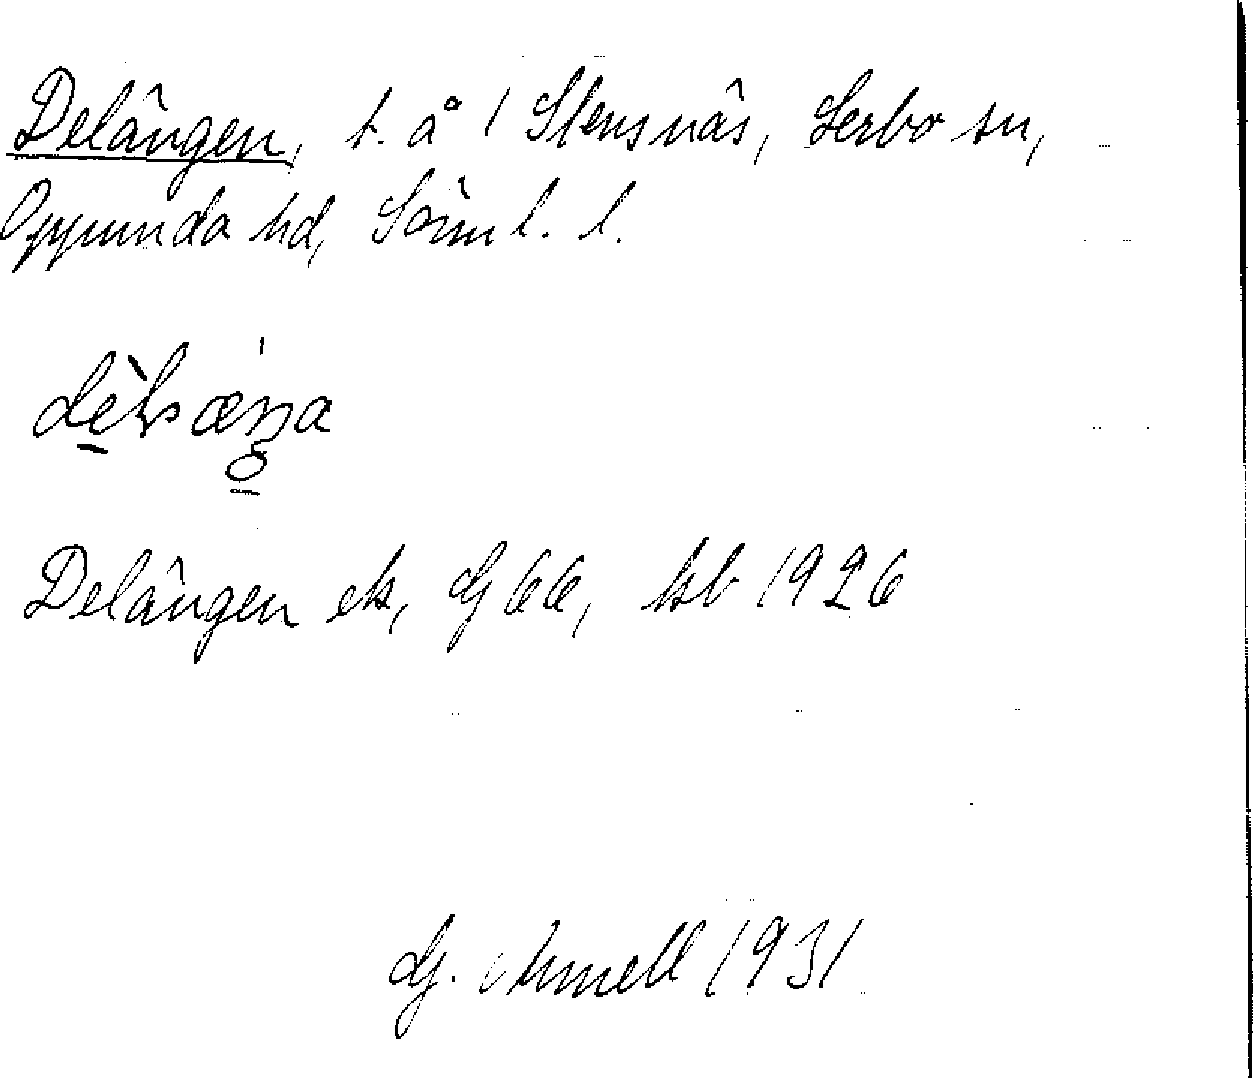 Delängen, t. å 1 Stensnäs, Lerbo sn,
Oppunda hd, Sörml. l.
Delängen ek, G 66, kb 1926
G. Arnell 1931